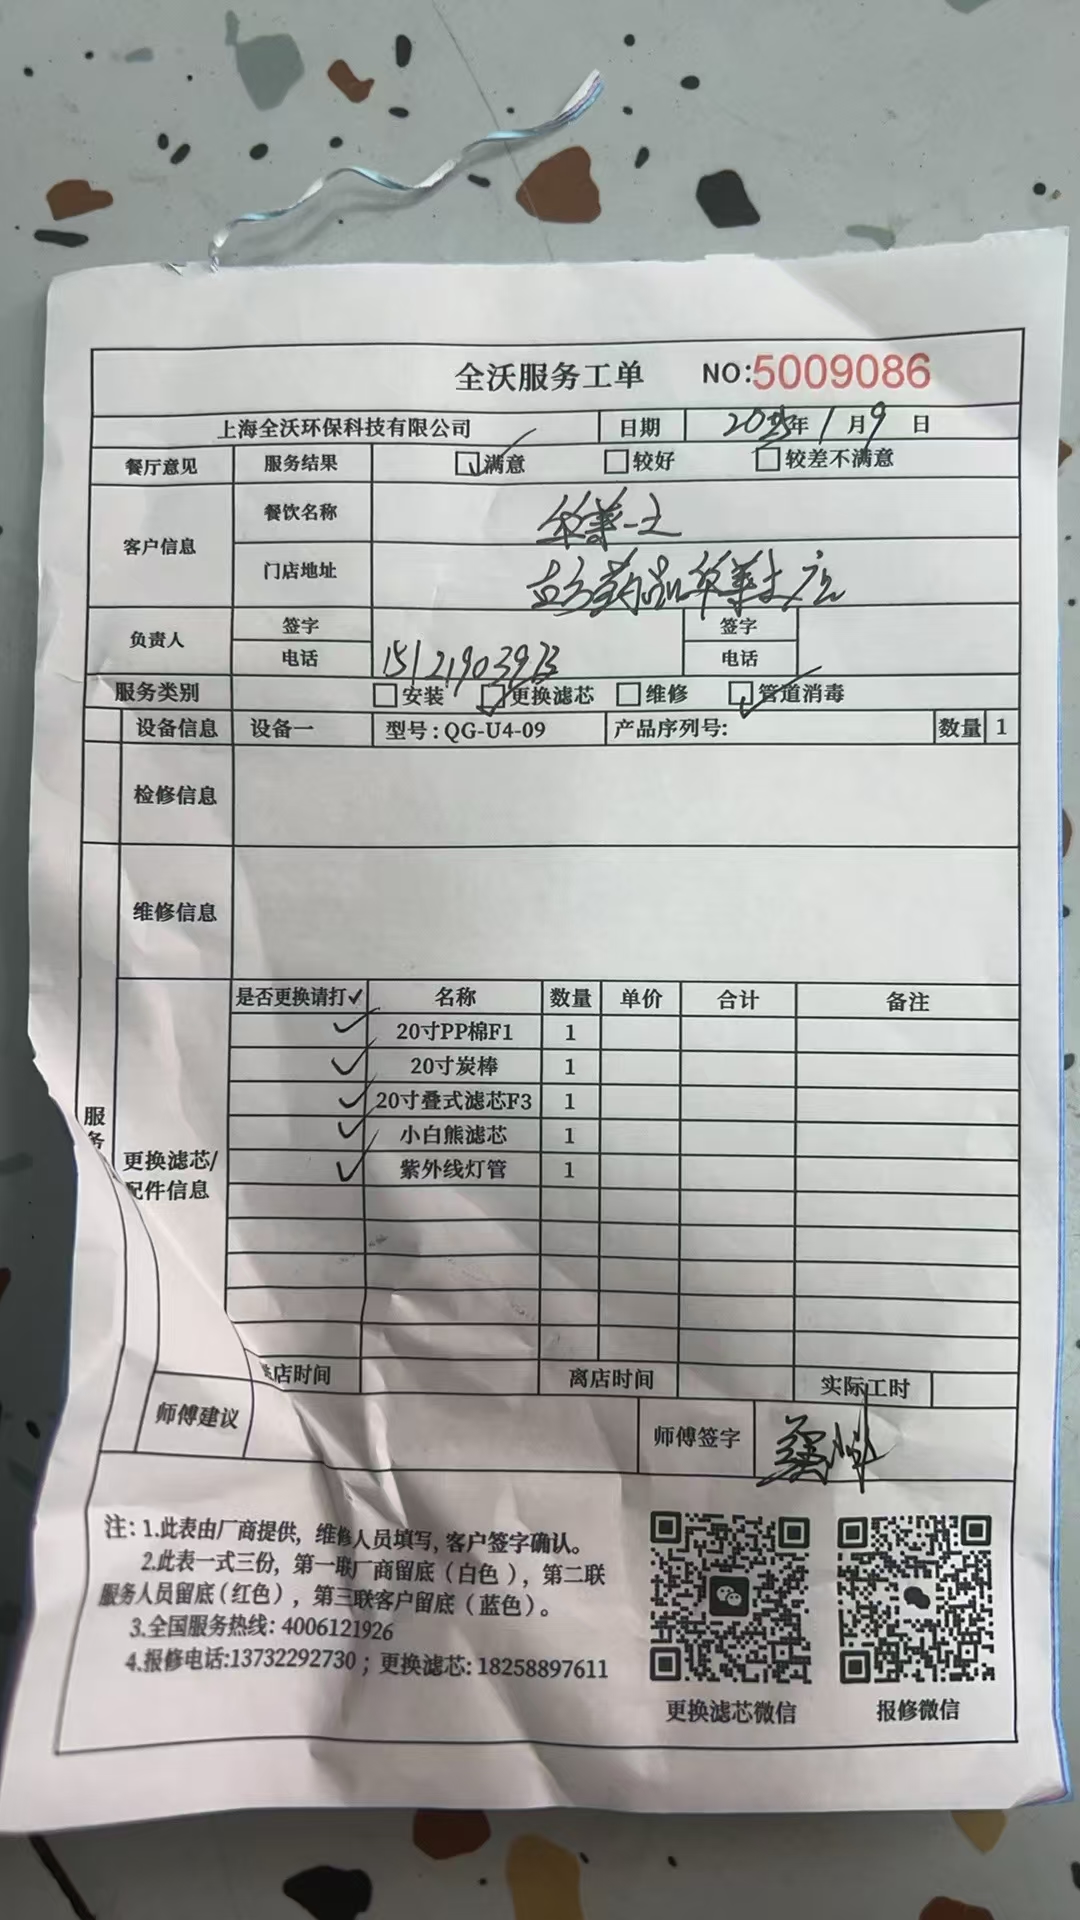 全沃服务工单 NO:5009086
上海全沃环保科技有限公司 日期 2025年1月9日
餐厅意见 服务结果 满意 较好 较差不满意
客户信息 餐饮名称 华莱士
门店地址
负责人 签字 签字
电话 电话
服务类别 安装 更换滤芯 维修 管道消毒
设备信息 设备一 型号:QG-U4-09 产品序列号: 数量 1
检修信息
维修信息
是否更换请打✓ 名称 数量 单价 合计 备注
✓ 20寸PP棉F1 1
✓ 20寸炭棒 1
✓ 20寸叠式滤芯F3 1
✓ 小白熊滤芯 1
✓ 紫外线灯管 1
服务
更换滤芯/
配件信息
店时间 离店时间 实际工时
师傅建议 师傅签字
注: 1.此表由厂商提供, 维修人员填写, 客户签字确认。
2.此表一式三份, 第一联厂商留底(白色), 第二联
服务人员留底(红色), 第三联客户留底(蓝色)。
3.全国服务热线: 4006121926
4.报修电话:13732292730; 更换滤芯: 18258897611
更换滤芯微信 报修微信